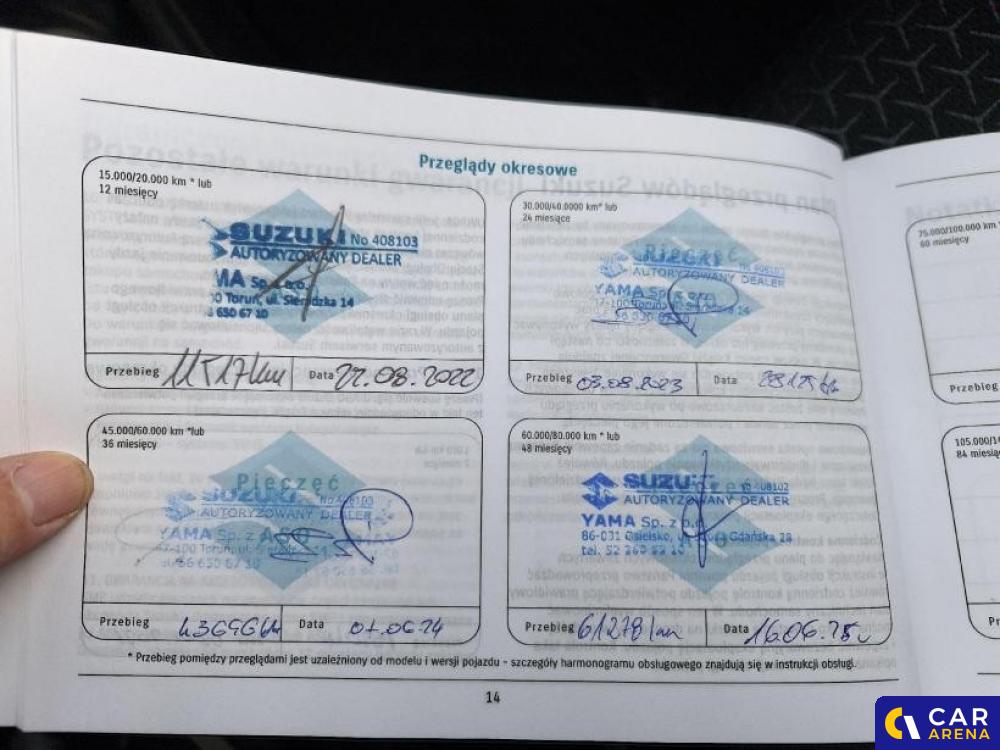 Przeglądy okresowe
15.000/20.000 km * lub
12 miesięcy
SUZUKI No 408103
AUTORYZOWANY DEALER
YAMA Sp. z o.o.
Toruń, ul. Sieradzka 14
Przebieg 11517km Data 22.08.2022
30.000/40.000 km* lub
24 miesiące
Pieczęć
AUTORYZOWANY DEALER
YAMA Sp. z o.o.
Przebieg 03.08.2023 Data
45.000/60.000 km *lub
36 miesięcy
Pieczęć
SUZUKI No 408103
AUTORYZOWANY DEALER
YAMA Sp. z o.o.
Przebieg Data 07.06.24
60.000/80.000 km * lub
48 miesięcy
SUZUKI No 408102
AUTORYZOWANY DEALER
YAMA Sp. z o.o.
86-031 Osielsko, ul. Gdańska 28
Przebieg 61278 km Data 16.06.25
75.000/100.000 km
60 miesięcy
Przebieg
84 miesiące
* Przebieg pomiędzy przeglądami jest uzależniony od modelu i wersji pojazdu - szczegóły harmonogramu obsługowego znajdują się w instrukcji obsługi.
14
CAR
ARENA